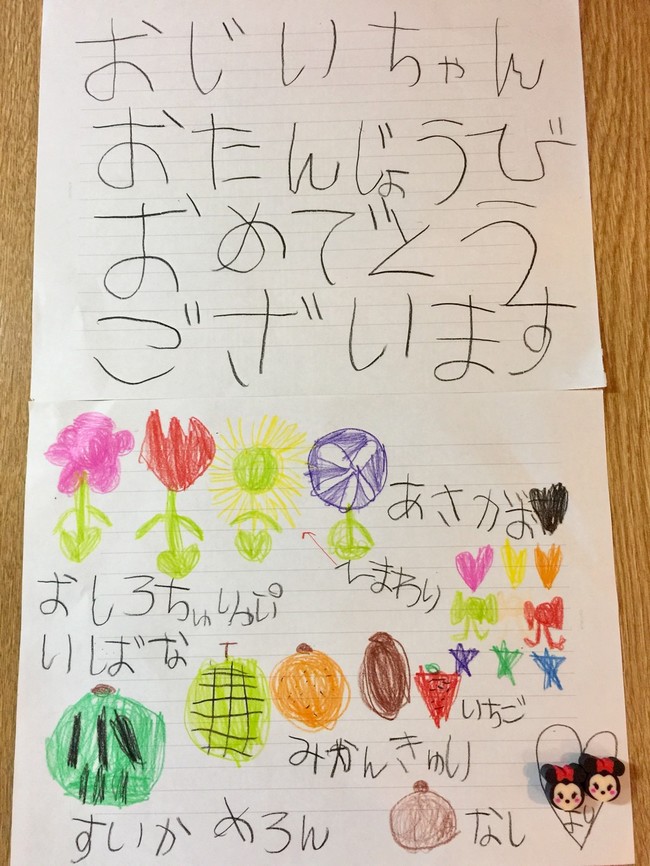 おじいちゃん
おたんじょうび
おめでとう
ございます
あさがお
ひまわり
おしろ
いばな
いちご
みかん きゅい
すいか めろん
なし
より